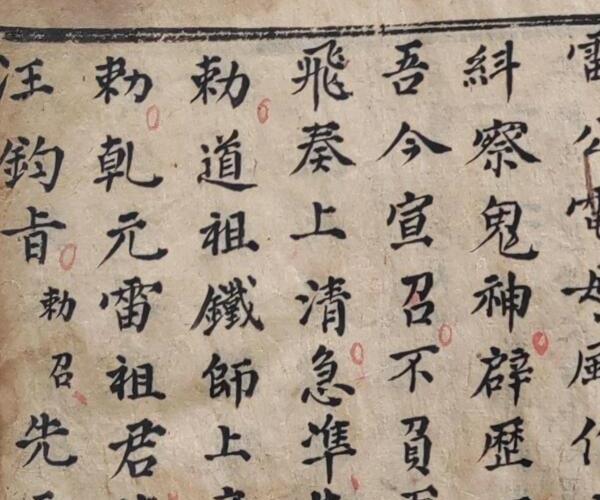 雷公電母風
糾察鬼神辟歷
吾今宣召不負
飛奏上清急準
勅道祖鐵師上
勅乹元雷祖君
汪鈞旨勅召先